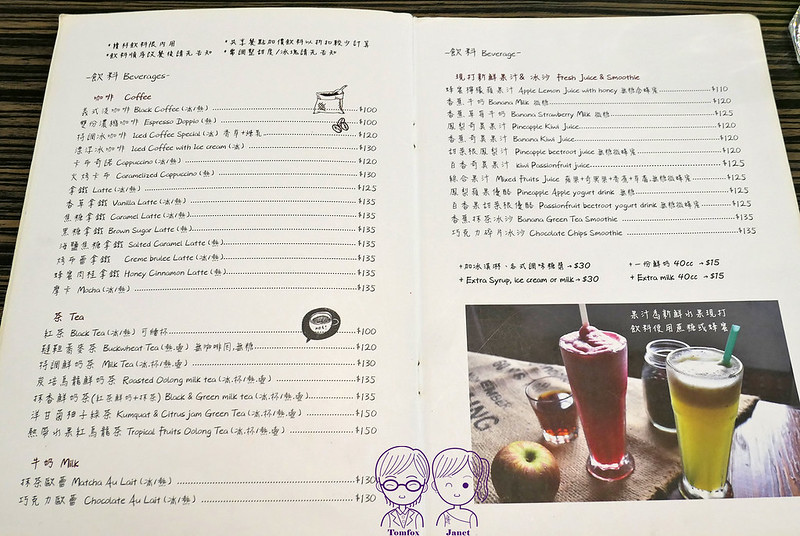 -飲料 Beverages-
咖啡 Coffee
義式咖啡 Black Coffee (冰/熱) $100
雙份濃縮咖啡 Espresso Doppio (熱) $100
特調冰咖啡 Iced Coffee Special (冰) $120
漂浮冰咖啡 Iced Coffee with Ice cream (冰) $130
卡布奇諾 Cappuccino (冰/熱) $120
火烤卡布 Caramelized Cappuccino (熱) $130
拿鐵 Latte (冰/熱) $125
香草拿鐵 Vanilla Latte (冰/熱) $135
焦糖拿鐵 Caramel Latte (冰/熱) $135
黑糖拿鐵 Brown Sugar Latte (熱) $135
海鹽焦糖拿鐵 Salted Caramel Latte (熱) $135
烤布蕾拿鐵 Creme brulee Latte (冰/熱) $135
蜂蜜肉桂拿鐵 Honey Cinnamon Latte (熱) $135
摩卡 Mocha (冰/熱) $135
茶 Tea
紅茶 Black Tea (冰/熱) 可續杯 $100
韃靼蕎麥茶 Buckwheat Tea (熱.壺) 無咖啡因.無糖 $120
特調鮮奶茶 Milk Tea (冰.杯/熱.壺) $130
炭焙烏龍鮮奶茶 Roasted Oolong milk tea (冰.杯/熱.壺) $135
抹香鮮奶茶(紅茶鮮奶+抹茶) Black & Green milk tea (冰.杯/熱.壺) $135
洋甘菊柚子綠茶 Kumquat & Citrus jam Green Tea (冰.杯/熱.壺) $150
熱帶水果紅烏龍茶 Tropical fruits Oolong Tea (冰.杯/熱.壺) $150
牛奶 Milk
抹茶歐蕾 Matcha Au Lait (冰/熱) $130
巧克力歐蕾 Chocolate Au Lait (冰/熱) $130
-飲料 Beverage-
現打新鮮果汁& 冰沙 fresh Juice & Smoothie
蜂蜜檸檬蘋果汁 Apple Lemon Juice with honey 無糖含蜂蜜 $110
香蕉牛奶 Banana Milk 微糖 $120
香蕉草莓牛奶 Banana Strawberry Milk 微糖 $125
鳳梨奇異果汁 Pineapple Kiwi Juice $120
香蕉奇異果汁 Banana Kiwi Juice $120
甜菜根鳳梨汁 Pineapple beetroot juice 無糖微蜂蜜 $120
百香奇異果汁 kiwi Passionfruit juice $125
綜合果汁 Mixed fruits Juice $125
鳳梨蘋果優酪 Pineapple Apple yogurt drink 無糖 $125
百香果甜菜根優酪 Passionfruit beetroot yogurt drink 無糖微蜂蜜 $125
香蕉抹茶冰沙 Banana Green Tea Smoothie $135
巧克力碎片冰沙 Chocolate Chips Smoothie $135
+加冰淇淋、各式調味糖漿 → $30
+ Extra Syrup, ice cream or milk → $30
+一份鮮奶 40cc → $15
+ Extra milk 40cc → $15
果汁為新鮮水果現打
飲料使用蔗糖或蜂蜜
Tomfox Janet